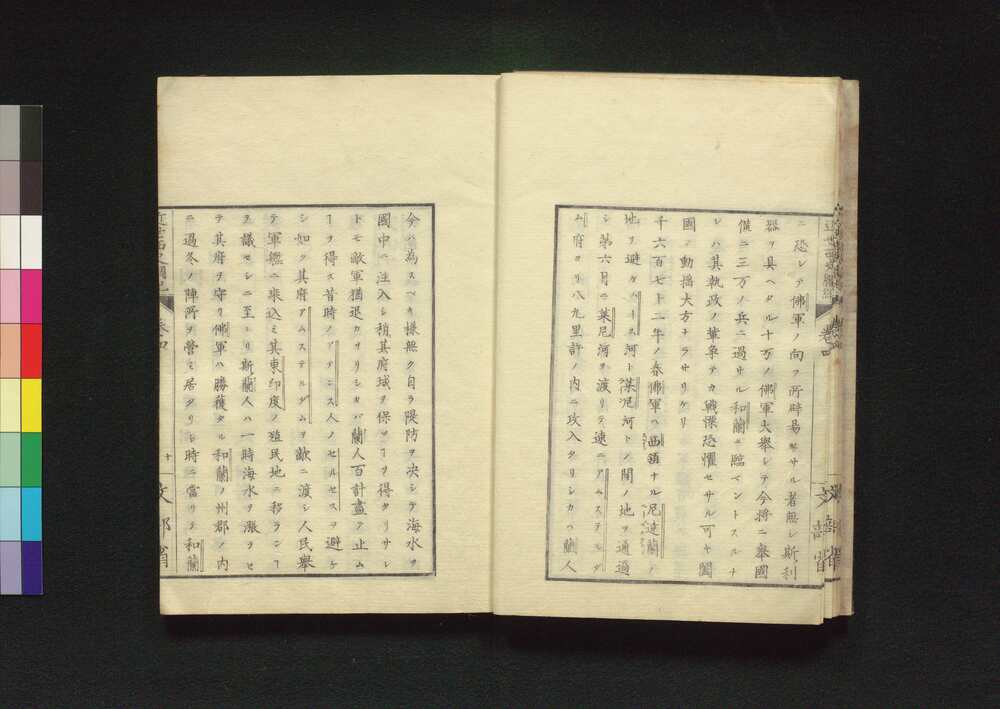 ニ恐レテ佛軍ノ向フ所辟易セサル者無レ斯利
器ヲ具ヘタル十万ノ佛軍大擧シテ今將ニ擧國
備ニ三万ノ兵ニ過サル和蘭ニ臨ベントスルナ
レハ其執政ノ輩爭テカ戰慄恐懼セサル可キ闔
國ノ動搖大方ナラサリケリ
千六百七十二年ノ春佛軍ハ西鎮ナル尼達蘭ノ
地ヲ避ケバース河ト謀尼河トノ間ノ地ヲ通過
シ第六月ニ葉尼河ヲ渡リテ速ニアムステルダ
ム府ヨリ八九里許ノ内ニ攻入タリシカハ蘭人
卷四
文部省
今ハ為スベキ樣無ク自ラ隄防ヲ决シテ海水ヲ
國中ニ注入シ稍其府域ヲ保ツヿヲ得タリサレ
トモ敵軍猶退カサリシカバ蘭人百計盡ア止ム
ヿヲ得ス昔時ノアデンス人ノセルセスヲ避ケ
シ如ク其府アムステルダムヲ敵ニ渡シ人民擧
テ軍艦ニ乘込ミ其東印度ノ殖民地ニ移ランヿ
ヲ議セシニ至レリ斯蘭人ハ一時海水ヲ漲ラセ
テ其府ヲ守リ佛軍ハ勝獲タル和蘭ノ州郡ノ内
ニ過冬ノ陣所ヲ營ミ居タリシ時ニ當リテ和蘭
卷四
十
文部省